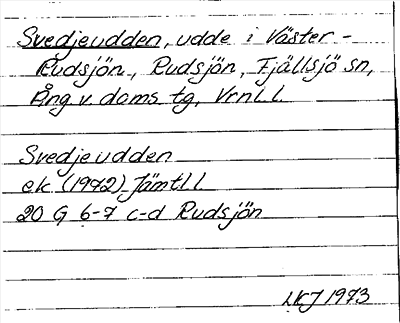 Svedjeudden, udde i Väster-
Rudsjön, Rudsjön, Fjällsjö sn,
Ång. v. doms. tg, Vrnl. l.
Svedjeudden
ek. (1972) Jämtl l
20 G 6-7 c-d Rudsjön
1973